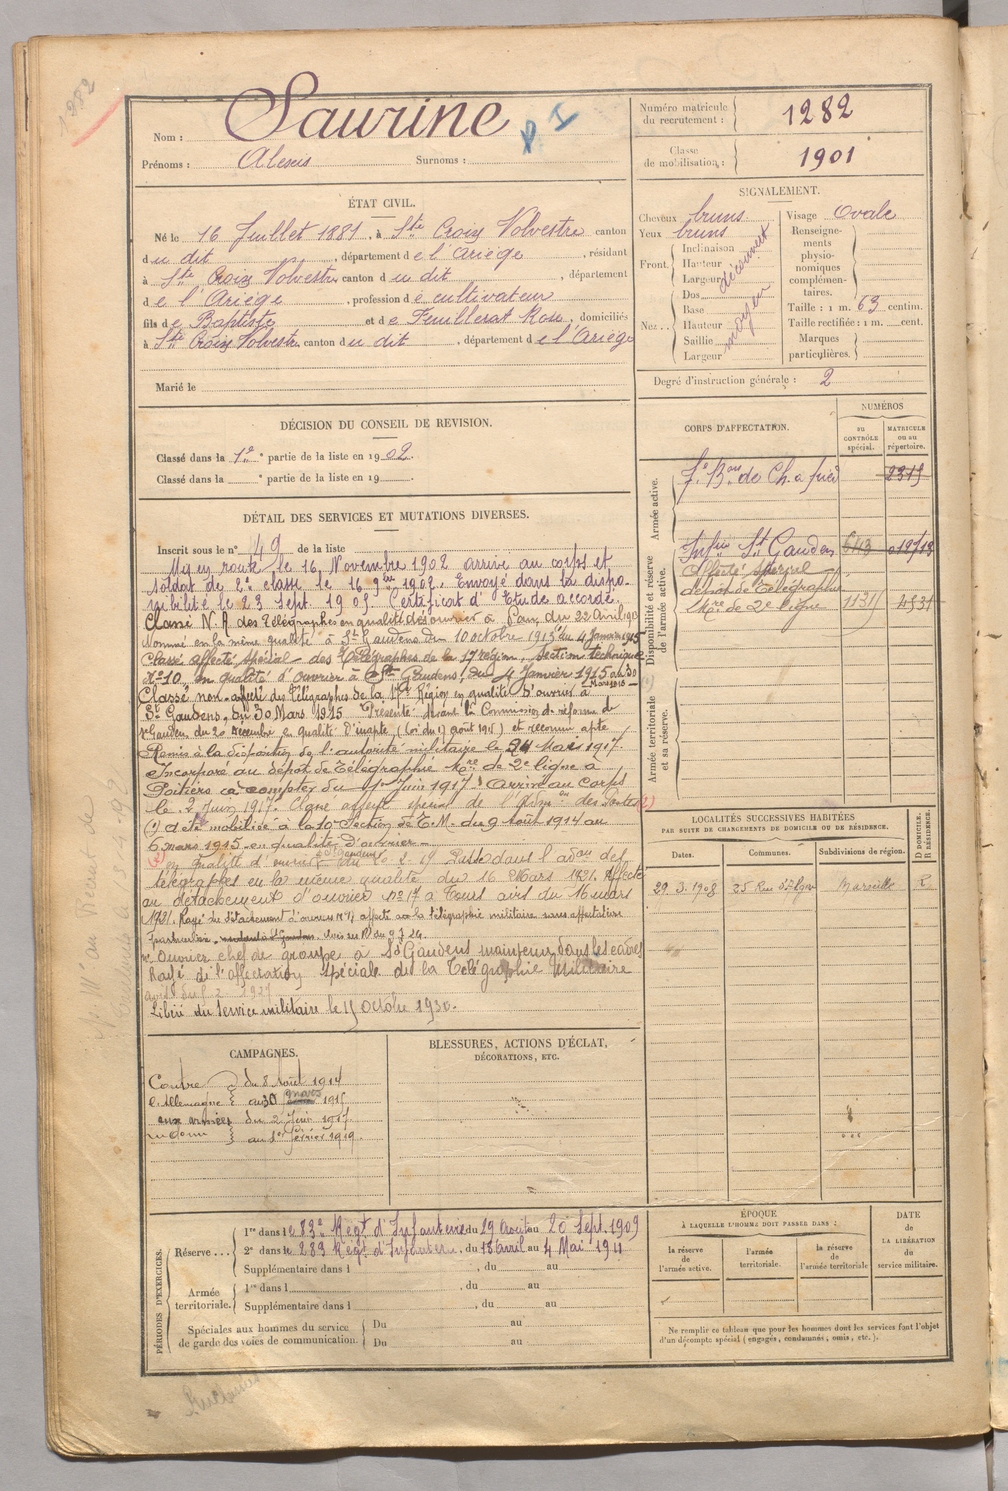 1282
Nom : Saurine
Prénoms : Alexis Surnoms :
Numéro matricule du recrutement : 1282
Classe de mobilisation : 1901
ÉTAT CIVIL.
Né le 16 Juillet 1881, à Ste Croix Volvestre canton
du dit, département de l'Ariège, résidant
à Ste Croix Volvestre canton du dit, département
de l'Ariège, profession de cultivateur
fils de Baptiste et de Feuillerat Rose, domiciliés
à Ste Croix Volvestre canton du dit, département de l'Ariège
Marié le
SIGNALEMENT.
Cheveux bruns
Yeux bruns
Front. Inclinaison Hauteur Largeur découvert
Nez. Dos Base Hauteur Saillie Largeur moyen
Visage Ovale
Renseignements physionomiques complémentaires.
Taille : 1 m. 63 centim.
Taille rectifiée : 1 m. cent.
Marques particulières.
Degré d'instruction générale : 2
DÉCISION DU CONSEIL DE REVISION.
Classé dans la 1e partie de la liste en 1902
Classé dans la ° partie de la liste en 19
CORPS D'AFFECTATION.
NUMÉROS
au CONTRÔLE spécial.
MATRICULE ou au répertoire.
Armée active.
7e Bon de Ch. à pied 2315
Disponibilité et réserve de l'armée active.
Infrie St Gaudens 643
Affecté spécial
dépôt de Télégraphie
Mre de 2e ligne 1131
Armée territoriale et sa réserve.
DÉTAIL DES SERVICES ET MUTATIONS DIVERSES.
Inscrit sous le n° 49 de la liste
Mis en route le 16 Novembre 1902 arrivé au corps et
soldat de 2e classe le 16 9bre 1902. Envoyé dans la dispo-
nibilité le 23 Sept. 1905. Certificat d'Etude accordé.
Classé N. A. des Télégraphes en qualité d'ouvrier à
Nommé en la même qualité à St Gaudens du 10 octobre 1913 au 4 Janvier 1915
Classé affecté spécial des Télégraphes de la 17e région, Section technique
No 10 en qualité d'ouvrier à St Gaudens, du 4 Janvier 1915 au 30
Mars 1915
Classé non affecté des Télégraphes de la 17e Région en qualité d'ouvrier à
St Gaudens, du 30 Mars 1915 Présenté devant la Commission de réforme de
St Gaudens du 20 Décembre en qualité d'inapte, (loi du 17 août 1915) et reconnu apte
Remis à la disposition de l'autorité militaire le 24 Mars 1917.
Incorporé au dépôt de Télégraphie Mre de 2e ligne à
Poitiers à compter du 1er Juin 1917 Arrivé au Corps
le 2 Juin 1917. Classé affecté spécial de l'Admon des Postes (2)
(1) A été mobilisé à la 10e Section de T. M. du 9 août 1914 au
6 mars 1915 en qualité d'ouvrier
(2) en qualité d'ouvrier à St Gaudens du 2-2-19 Passé dans l'adon des
télégraphes en la même qualité du 16 Mars 1921. Affecté
au détachement d'ouvrier No 17 à Tours avis du 16 mars
1921. Rayé du détachement d'ouvriers No 17 affecté sur la télégraphie militaire sans affectation
particulière avis du 9.7.24
Ouvrier chef de groupe à St Gaudens maintenu dans les cadres
Rayé de l'affectation spéciale de la Télégraphie Militaire
Libéré du Service militaire le 15 Octobre 1930.
LOCALITÉS SUCCESSIVES HABITÉES
PAR SUITE DE CHANGEMENTS DE DOMICILE OU DE RÉSIDENCE.
Dates. Communes. Subdivisions de région. D DOMICILE. R RÉSIDENCE.
29.3.1908 25 Rue d'Alger Marseille R
CAMPAGNES.
Contre l'Allemagne du 8 Août 1914
au 30 mars 1915
aux armées du 2 Juin 1917
au 1er février 1919
BLESSURES, ACTIONS D'ÉCLAT,
DÉCORATIONS, ETC.
PÉRIODES D'EXERCICES.
Réserve... 1re dans le 83e Régt d'Infanterie du 29 Août au 20 Sept. 1909
2e dans le 283 Régt d'Infanterie, du 18 Avril au 4 Mai 1911
Supplémentaire dans l , du au
Armée territoriale. 1re dans l , du au
Supplémentaire dans l , du au
Spéciales aux hommes du service de garde des voies de communication. Du au
Du au
ÉPOQUE
À LAQUELLE L'HOMME DOIT PASSER DANS :
la réserve de l'armée active.
l'armée territoriale.
la réserve de l'armée territoriale
DATE de LA LIBÉRATION du service militaire.
Ne remplir ce tableau que pour les hommes dont les services font l'objet
d'un décompte spécial (engagés, condamnés, omis, etc.).